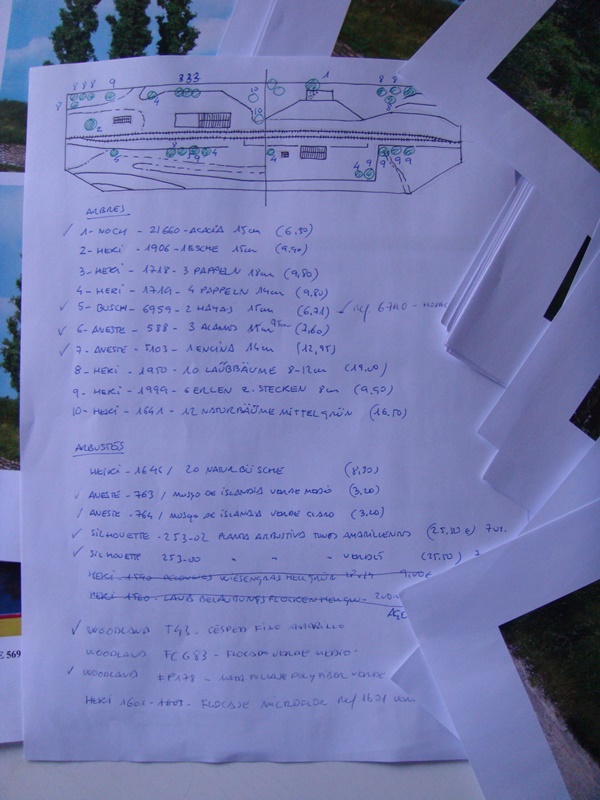 8 8 8 9 8 3 3 1 8 8
8 4 10 10 8
2
5 4 9 9 9
4 9
ARBRES
✓ 1- NOCH - 21660 - ACACIA 15cm (6,50)
2- HEKI - 1906 - 1 ESCHE 15cm (9,90)
3- HEKI - 1718 - 3 PAPPELN 18cm (9,80)
4- HEKI - 1719 - 4 PAPPELN 14cm (9,80)
✓ 5- BUSCH - 6959 - 2 HAYAS 15cm (6,71) Ref 6740
✓ 6- ANESTE - 588 - 3 ALAMOS 15cm (7,60)
✓ 7- ANESTE - 5103 - 1 ENCINA 14cm (12,95)
8- HEKI - 1950 - 10 LAÜBBÄUME 8-12cm (19,00)
9- HEKI - 1999 - 6 ERLEN Z. STECKEN 8cm (9,90)
10- HEKI - 1641 - 12 NATURBÄUME MITTELGRÜN (16.50)
ARBUSTES
HEKI - 1646 / 20 NATURBÜSCHE (8,30)
✓ ANESTE - 763 / MUSGO DE ISLANDIA VERDE MEDIO (3,20)
✓ ANESTE - 764 / MUSGO DE ISLANDIA VERDE CLARO (3,20)
✓ SILHOUETTE - 253-02 PLANTA ARBUSTIVA TONOS AMARILLENTOS (25,50 €)
✓ SILHOUETTE 253-00 " " " VERDES (25.50)
HEKI WIESENGRAS HELLGRÜN 9,00€
HEKI - 1560 - LAUB BELAUBUNGSFLOCKEN
✓ WOODLAND T43 - CÉSPED FINO AMARILLO
WOODLAND FCG83 - FLOCADO VERDE MEDIO
✓ WOODLAND FP178 - POLYFIBER VERDE
HEKI 1601 - 1603 - FLOCAJE MICROFLOR Ref 1621
E 569